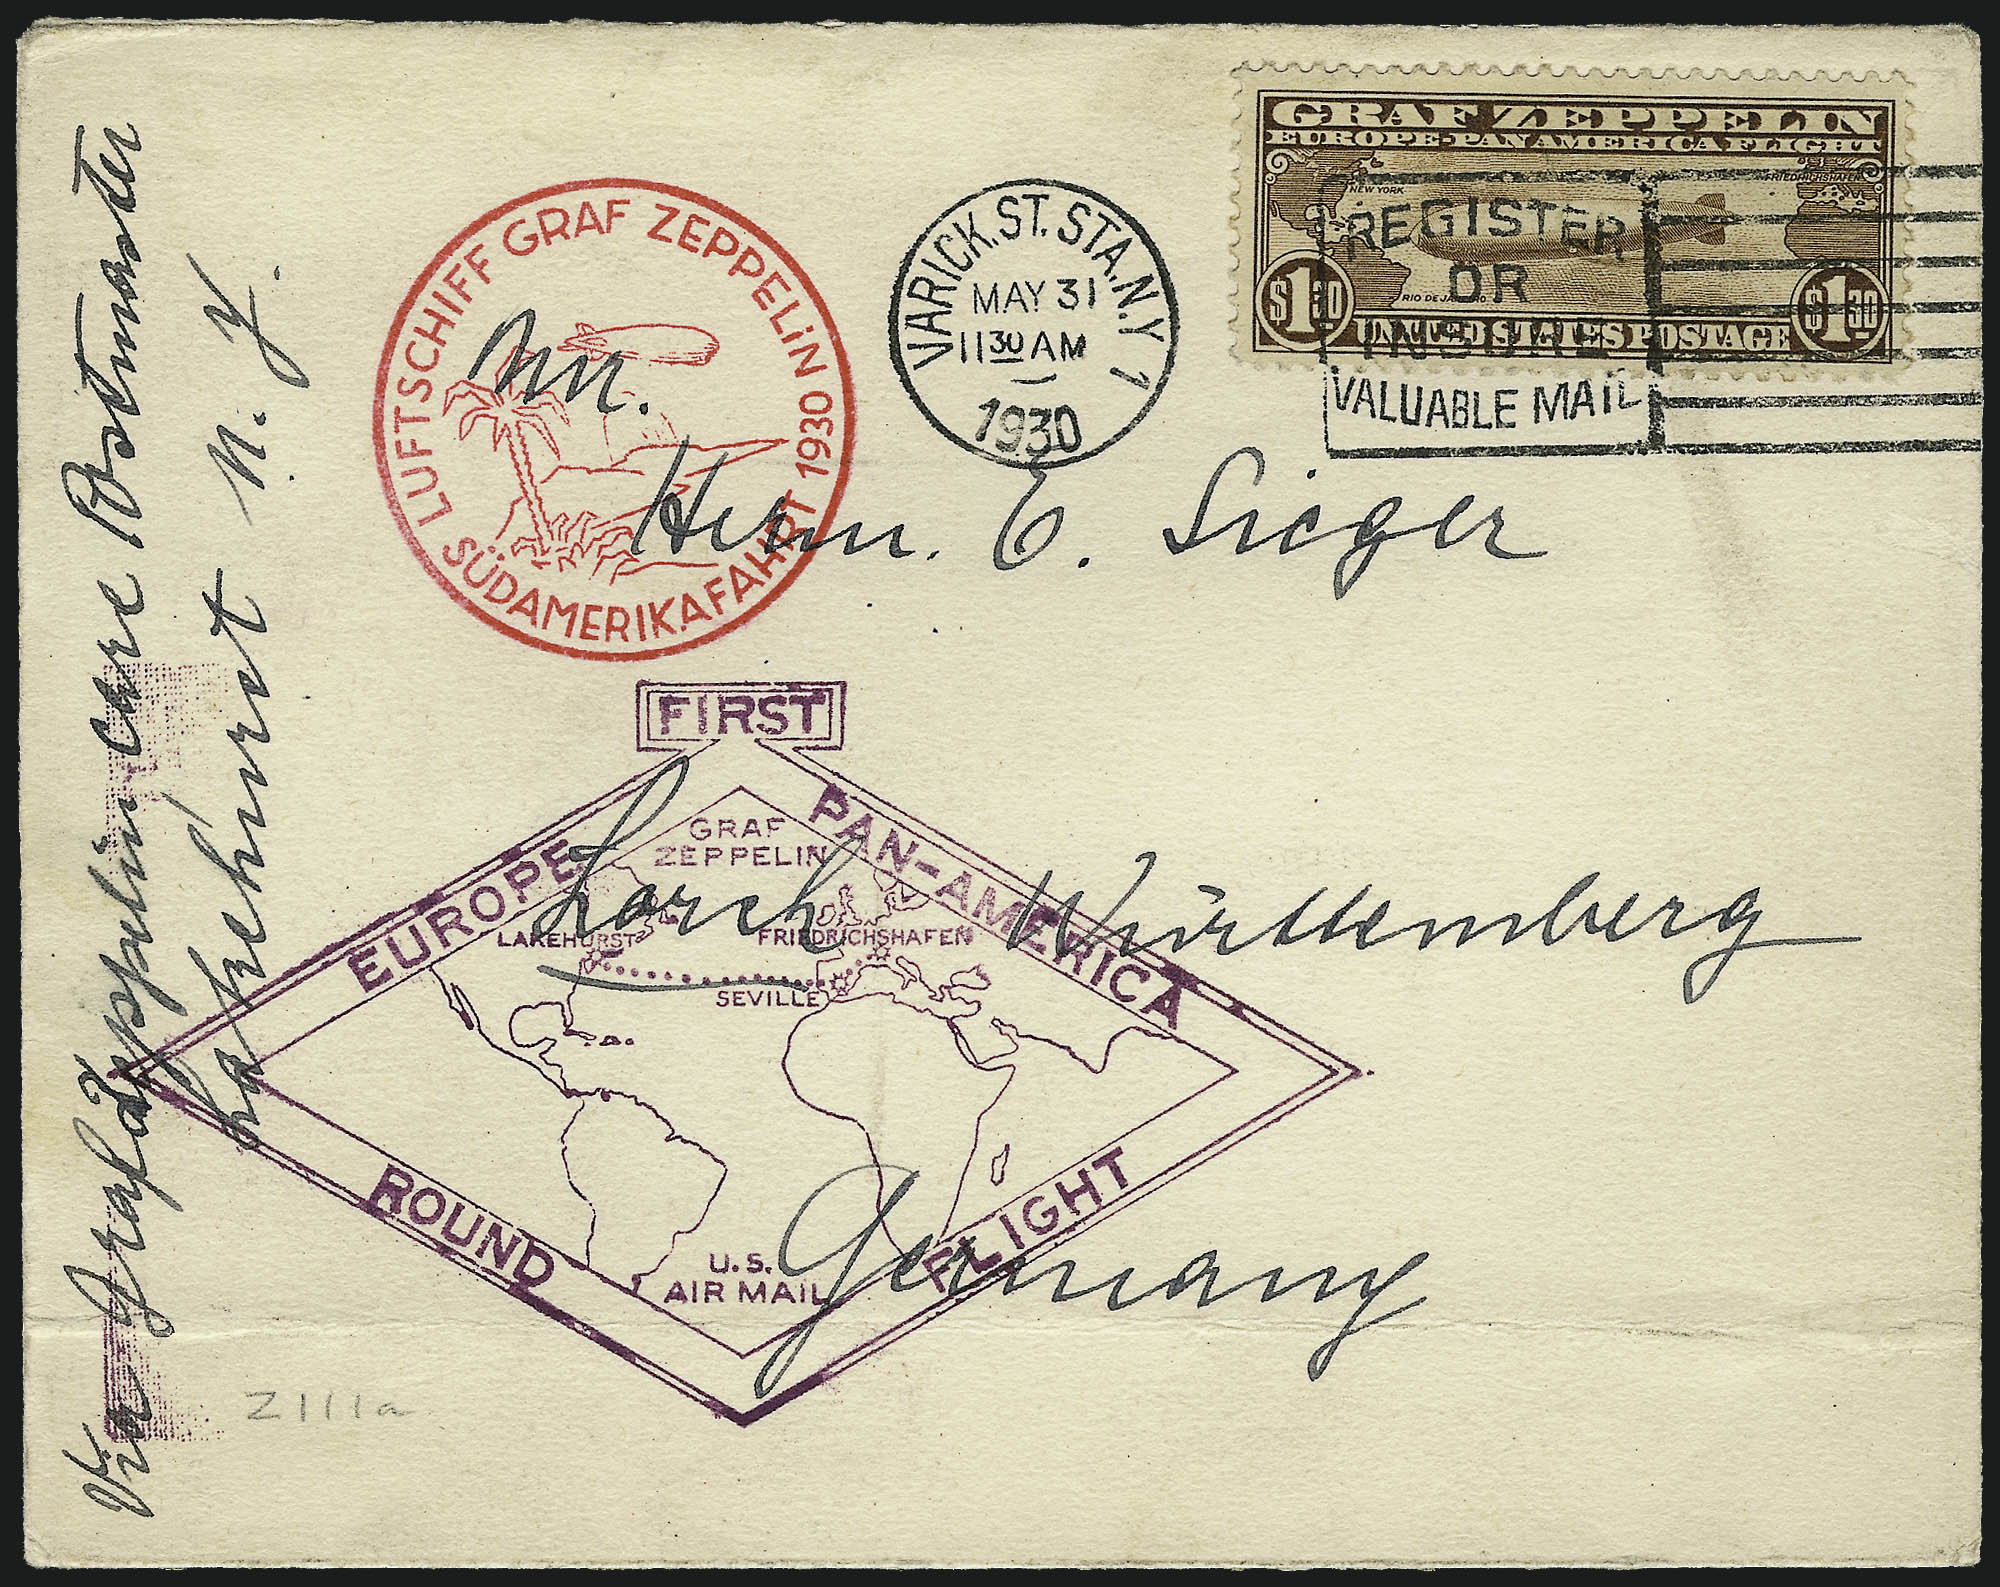 GRAF ZEPPELIN
EUROPE-PAN AMERICA FLIGHT
NEW YORK
FRIEDRICHSHAFEN
RIO DE JANEIRO
$1 30
$1 30
UNITED STATES POSTAGE
REGISTER
OR
INSURE
VALUABLE MAIL
VARICK. ST. STA. N.Y 1
MAY 31
11 30 AM
1930
LUFTSCHIFF GRAF ZEPPELIN 1930
SÜDAMERIKAFAHRT
An.
Herrn. E. Sieger
Lorch Württemberg
Germany
Via Graf Zeppelin care Postmaster
Lakehurst N. Y.
FIRST
EUROPE
PAN-AMERICA
GRAF
ZEPPELIN
LAKEHURST
FRIEDRICHSHAFEN
SEVILLE
U.S.
AIR MAIL
ROUND
FLIGHT
Z111a